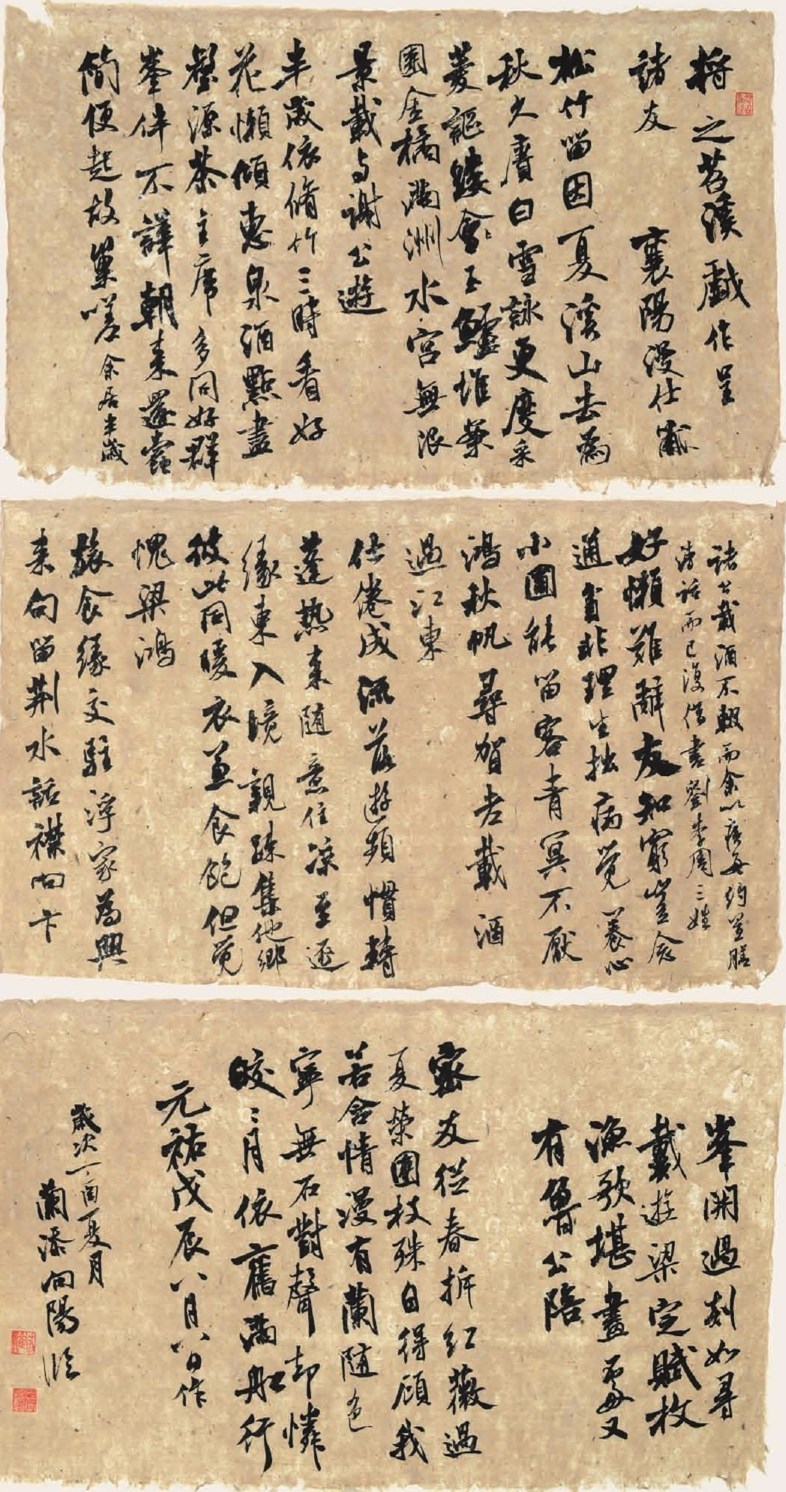 將之苕溪戲作呈
諸友 襄陽漫仕黻
松竹留因夏溪山去為
秋久賡白雪詠更度采
菱謳縷會玉鱸堆案
團金橘滿洲水宮無限
景載与謝公遊
半歲依脩竹三時看好
花懶傾惠泉酒點盡
壑源茶主席多同好群
峯伴不譁朝来還蠹
簡便起故巢嗟余居半歲
諸公載酒不輟而余以疾每約置膳
清話而已復借書劉李周三姓
好懶難辭友知窮豈念
通貧非理生拙病覺養心
小圃能留客青冥不厭
鴻秋帆尋賀老載酒
過江東
仕倦成流落遊頻慣轉
蓬熱来隨意住涼至逐
緣東入境親疎集他鄉
彼此同暖衣兼食飽但覺
愧梁鴻
旅食緣交駐浮家為興
来句留荆水話襟向卞
峯開過剡如尋
戴遊梁定賦枚
漁歌堪畫處又
有魯公陪
密友從春拆紅薇過
夏榮團枝殊自得顧我
若含情漫有蘭隨色
寧無石對聲却憐
皎〻月依舊滿船行
元祐戊辰八月八日作
歲次丁酉夏月
蘭溪向陽臨